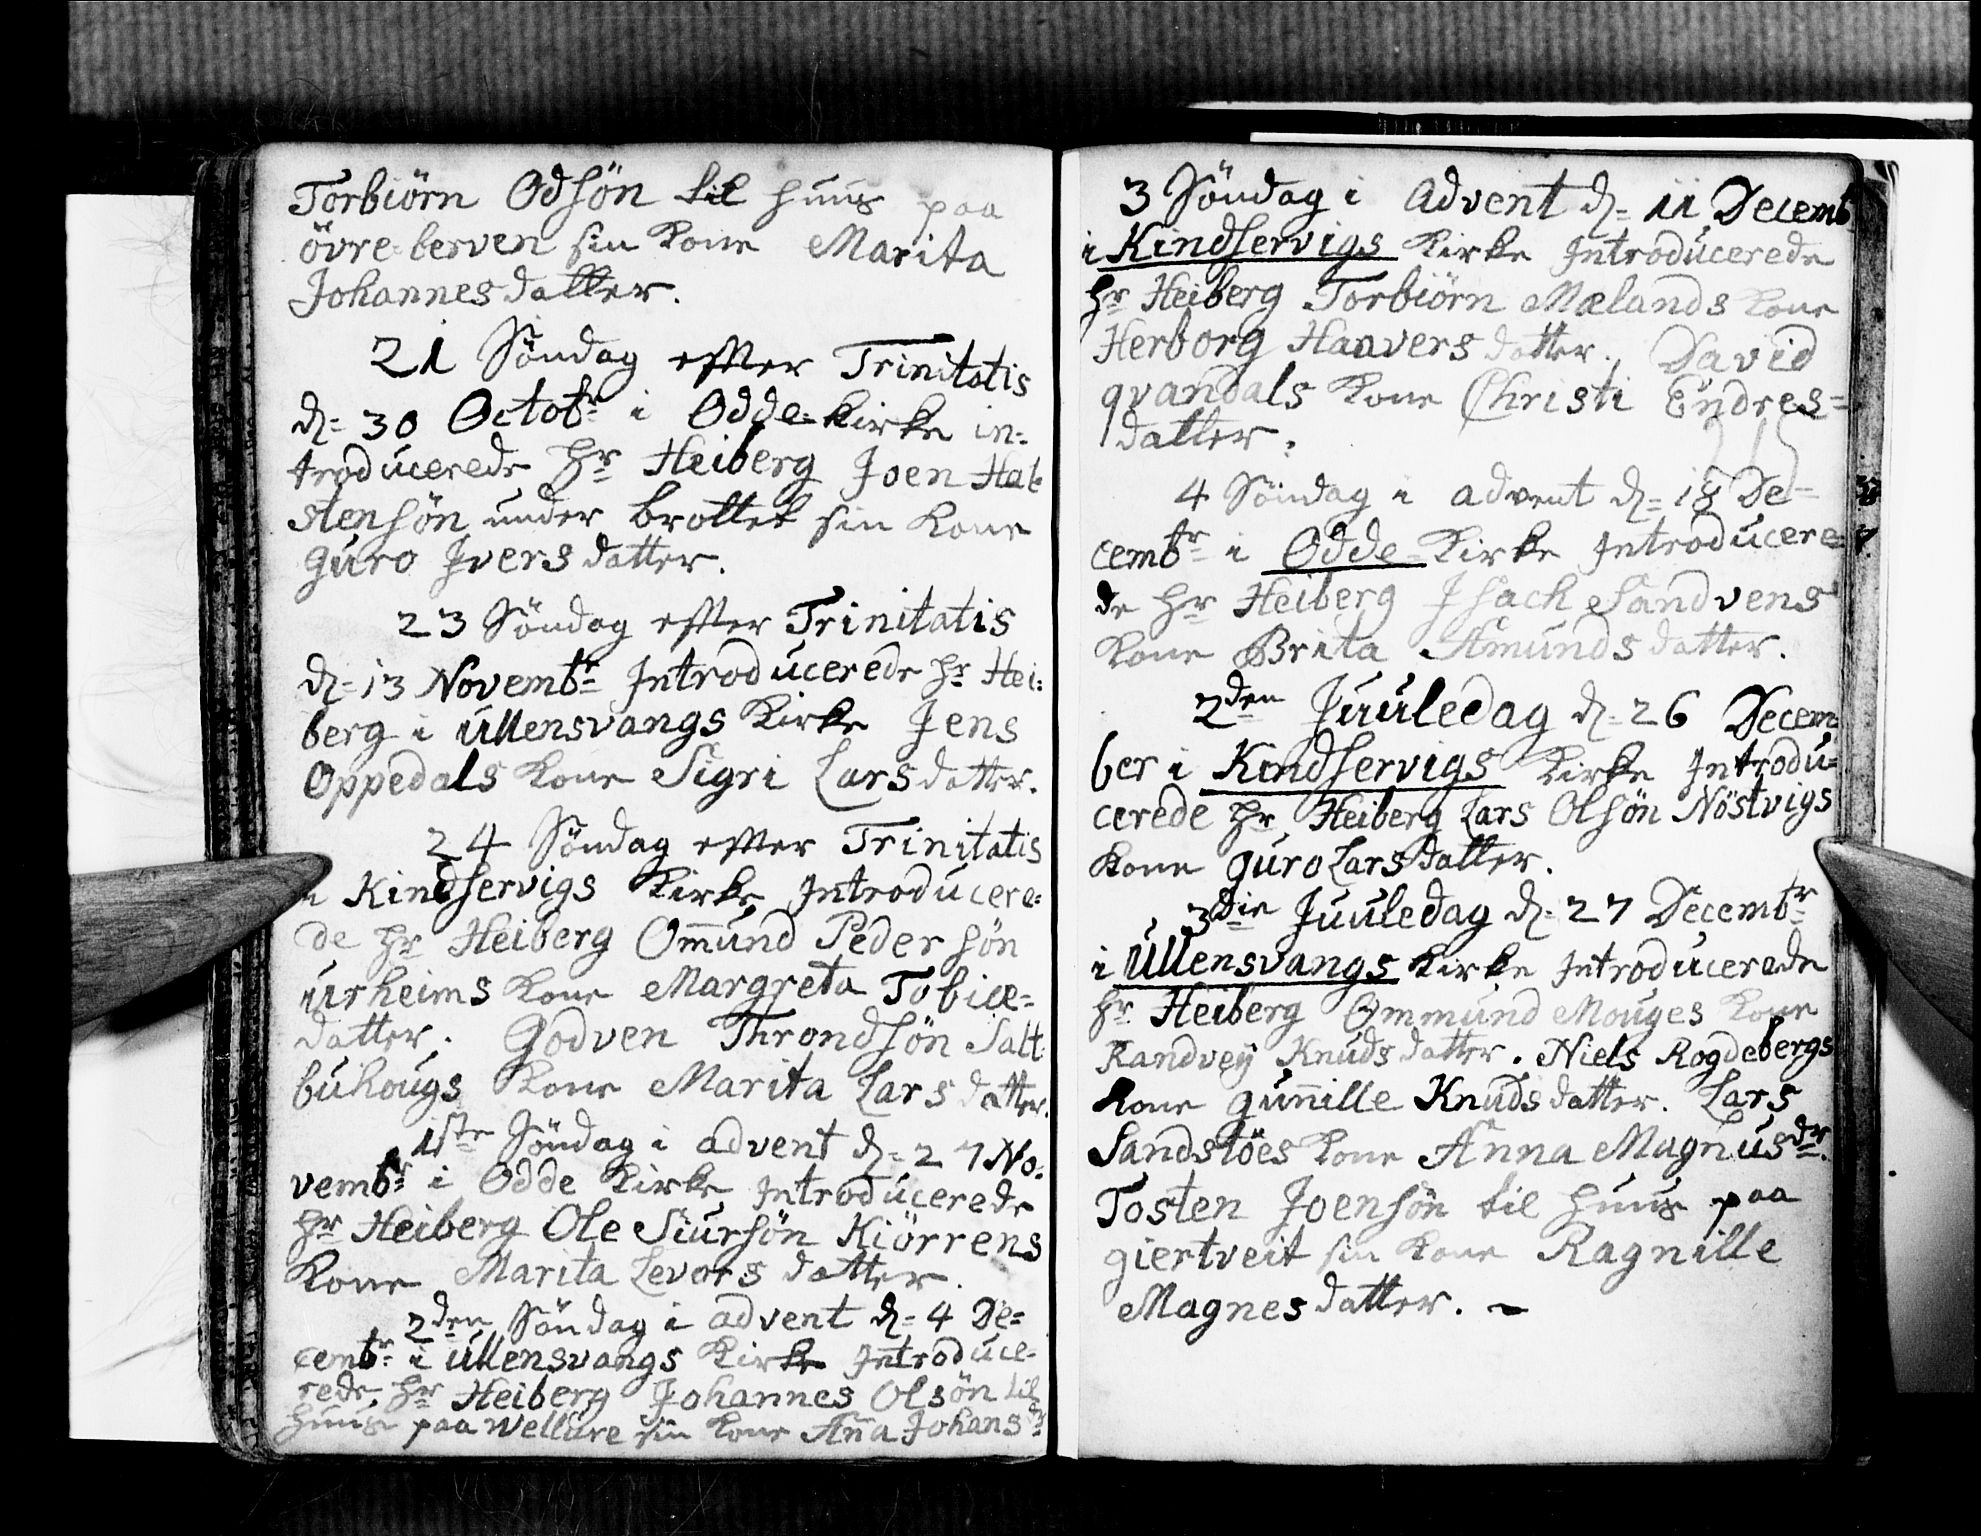 Torbiörn Odsön til huus paa
övre berven sin kone Marita
Johannesdatter.
21 Söndag efter Trinitatis
d= 30 Octobr i Odde-kirke in-
troducerede hr Heiberg Joen Hal-
stensön under brottet sin kone
guro Iversdatter.
23 Söndag efter Trinitatis
d= 13 Novembr Introducerede hr Hei-
berg i Ullensvangs kirke Jens
Oppedals kone Sigri Larsdatter.
24 Söndag efter Trinitatis
i Kindservigs kirke Introducere-
de hr Heiberg Om̄und Pedersön
urheims kone Margreta Tobiæ-
datter. Godven Throndsön Salt
buhougs kone Marita Larsdatter.
1ste Söndag i advent d= 27 No-
vembr i Odde kirke Introducerede
hr Heiberg Ole Siursön Kiörrens
kone Marita Levorsdatter.
2den Söndag i advent d= 4 De-
cembr i Ullensvangs kirke Introduce-
rede hr Heiberg Johannes Olsön til
huus paa Wellure sin kone An̄a Johansdr
3 Söndag i Advent d= 11 Decemb
i Kindservigs kirke Introducerede
hr Heiberg Torbiörn Mælands kone
Herborg Haaversdatter. David
qvandals kone Christi Endres-
datter.
4 Söndag i advent d= 18 De-
cembr i Odde-kirke Introducere-
de hr Heiberg Isack Sandvens
kone Brita Amundsdatter.
2den Juuledag d= 26 Decem-
ber i Kindservigs kirke Introdu-
cerede hr Heiberg Lars Olsön Nöstvigs
kone guro Larsdatter.
3die Juuledag d= 27 Decembr
i Ullensvangs kirke Introducerede
hr Heiberg Ommund Mouges kone
Randvey Knudsdatter. Niels Rogdebergs
kone gun̄ille Knudsdatter. Lars
Sandstöes kone Anna Magnusdr.
Tosten Joensön til huus paa
giertveit sin kone Ragnille
Magnesdatter.